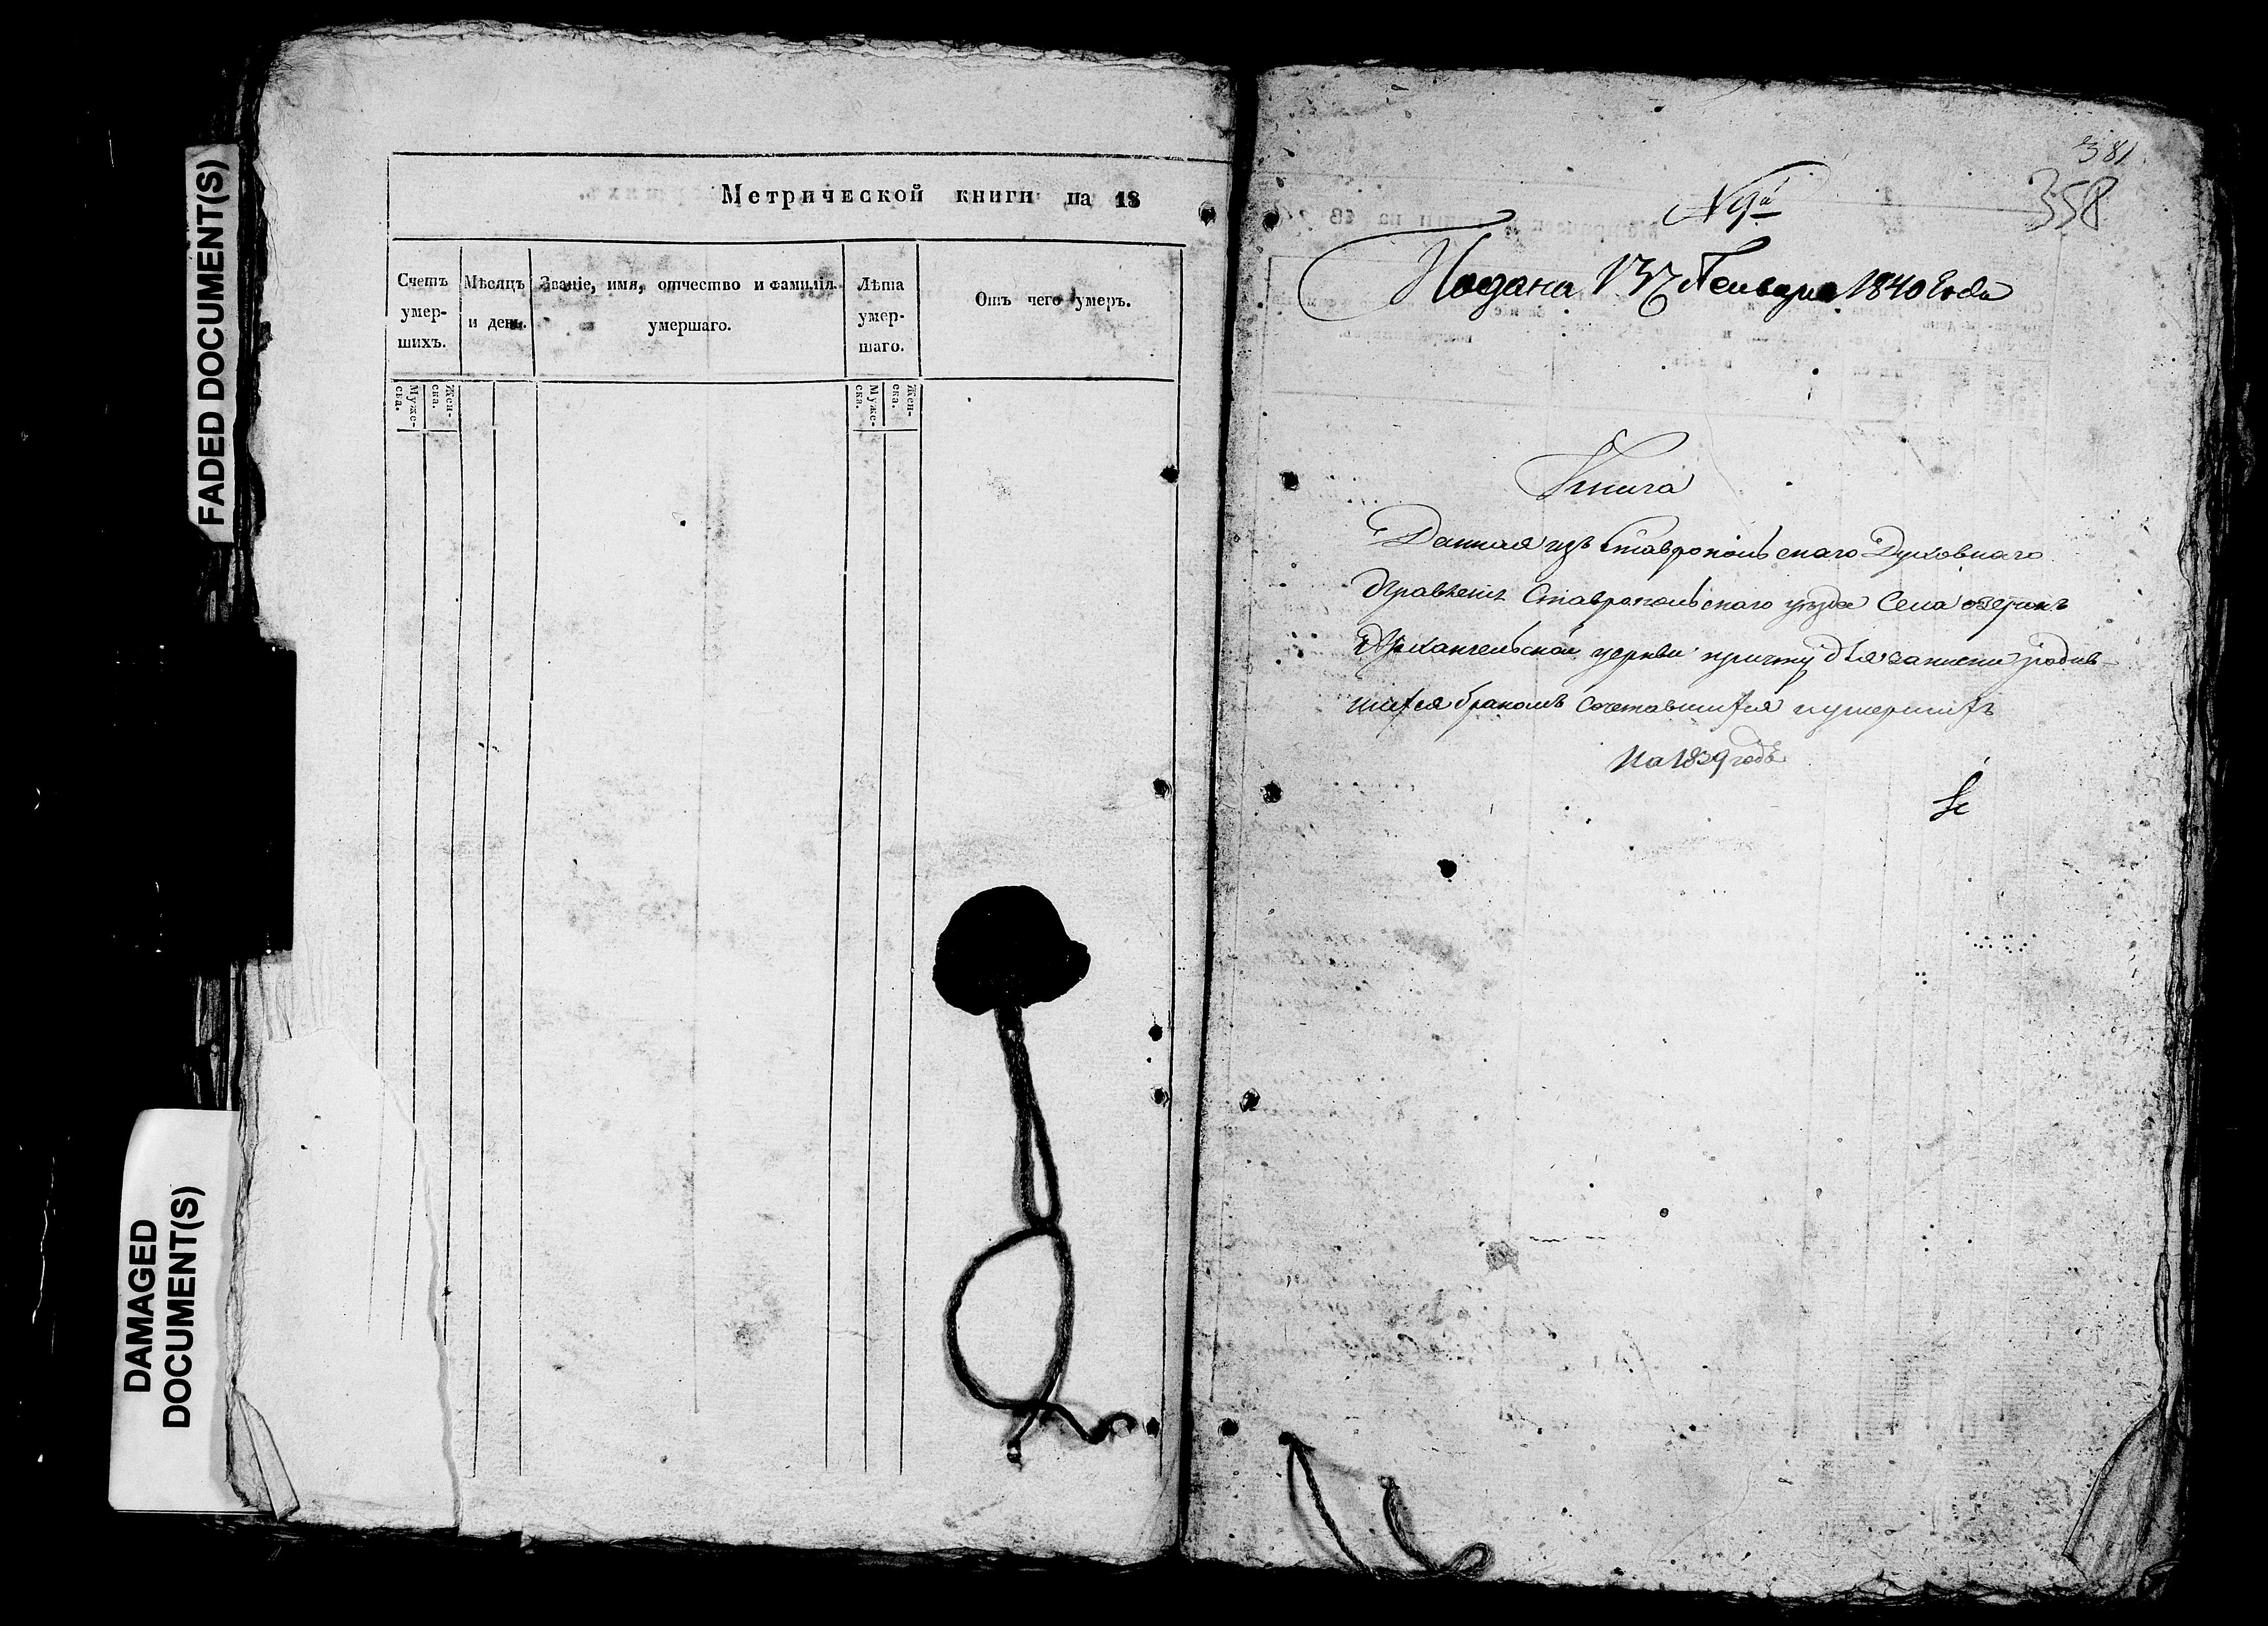 FADED DOCUMENT(S)
DAMAGED
DOCUMENT(S)
Метрической книги на 18
Счетъ умер- шихъ.
Мѣсяцъ и день.
Званіе, имя, отчество и фамилія умершаго.
Лѣта умер- шаго.
Отъ чего умеръ.
Муже- ска.
Жен- ска.
Муже- ска.
Жен- ска.
381
358
Подана Генваря 1840 Года
Книга
Данная изъ Ставропольскаго Духовнаго
Правленія Ставропольскаго уѣзда Села озерокъ
Архангельской церкви причту для записки родив-
шихся бракомъ сочетавшихся и умершихъ
На 1839 годъ